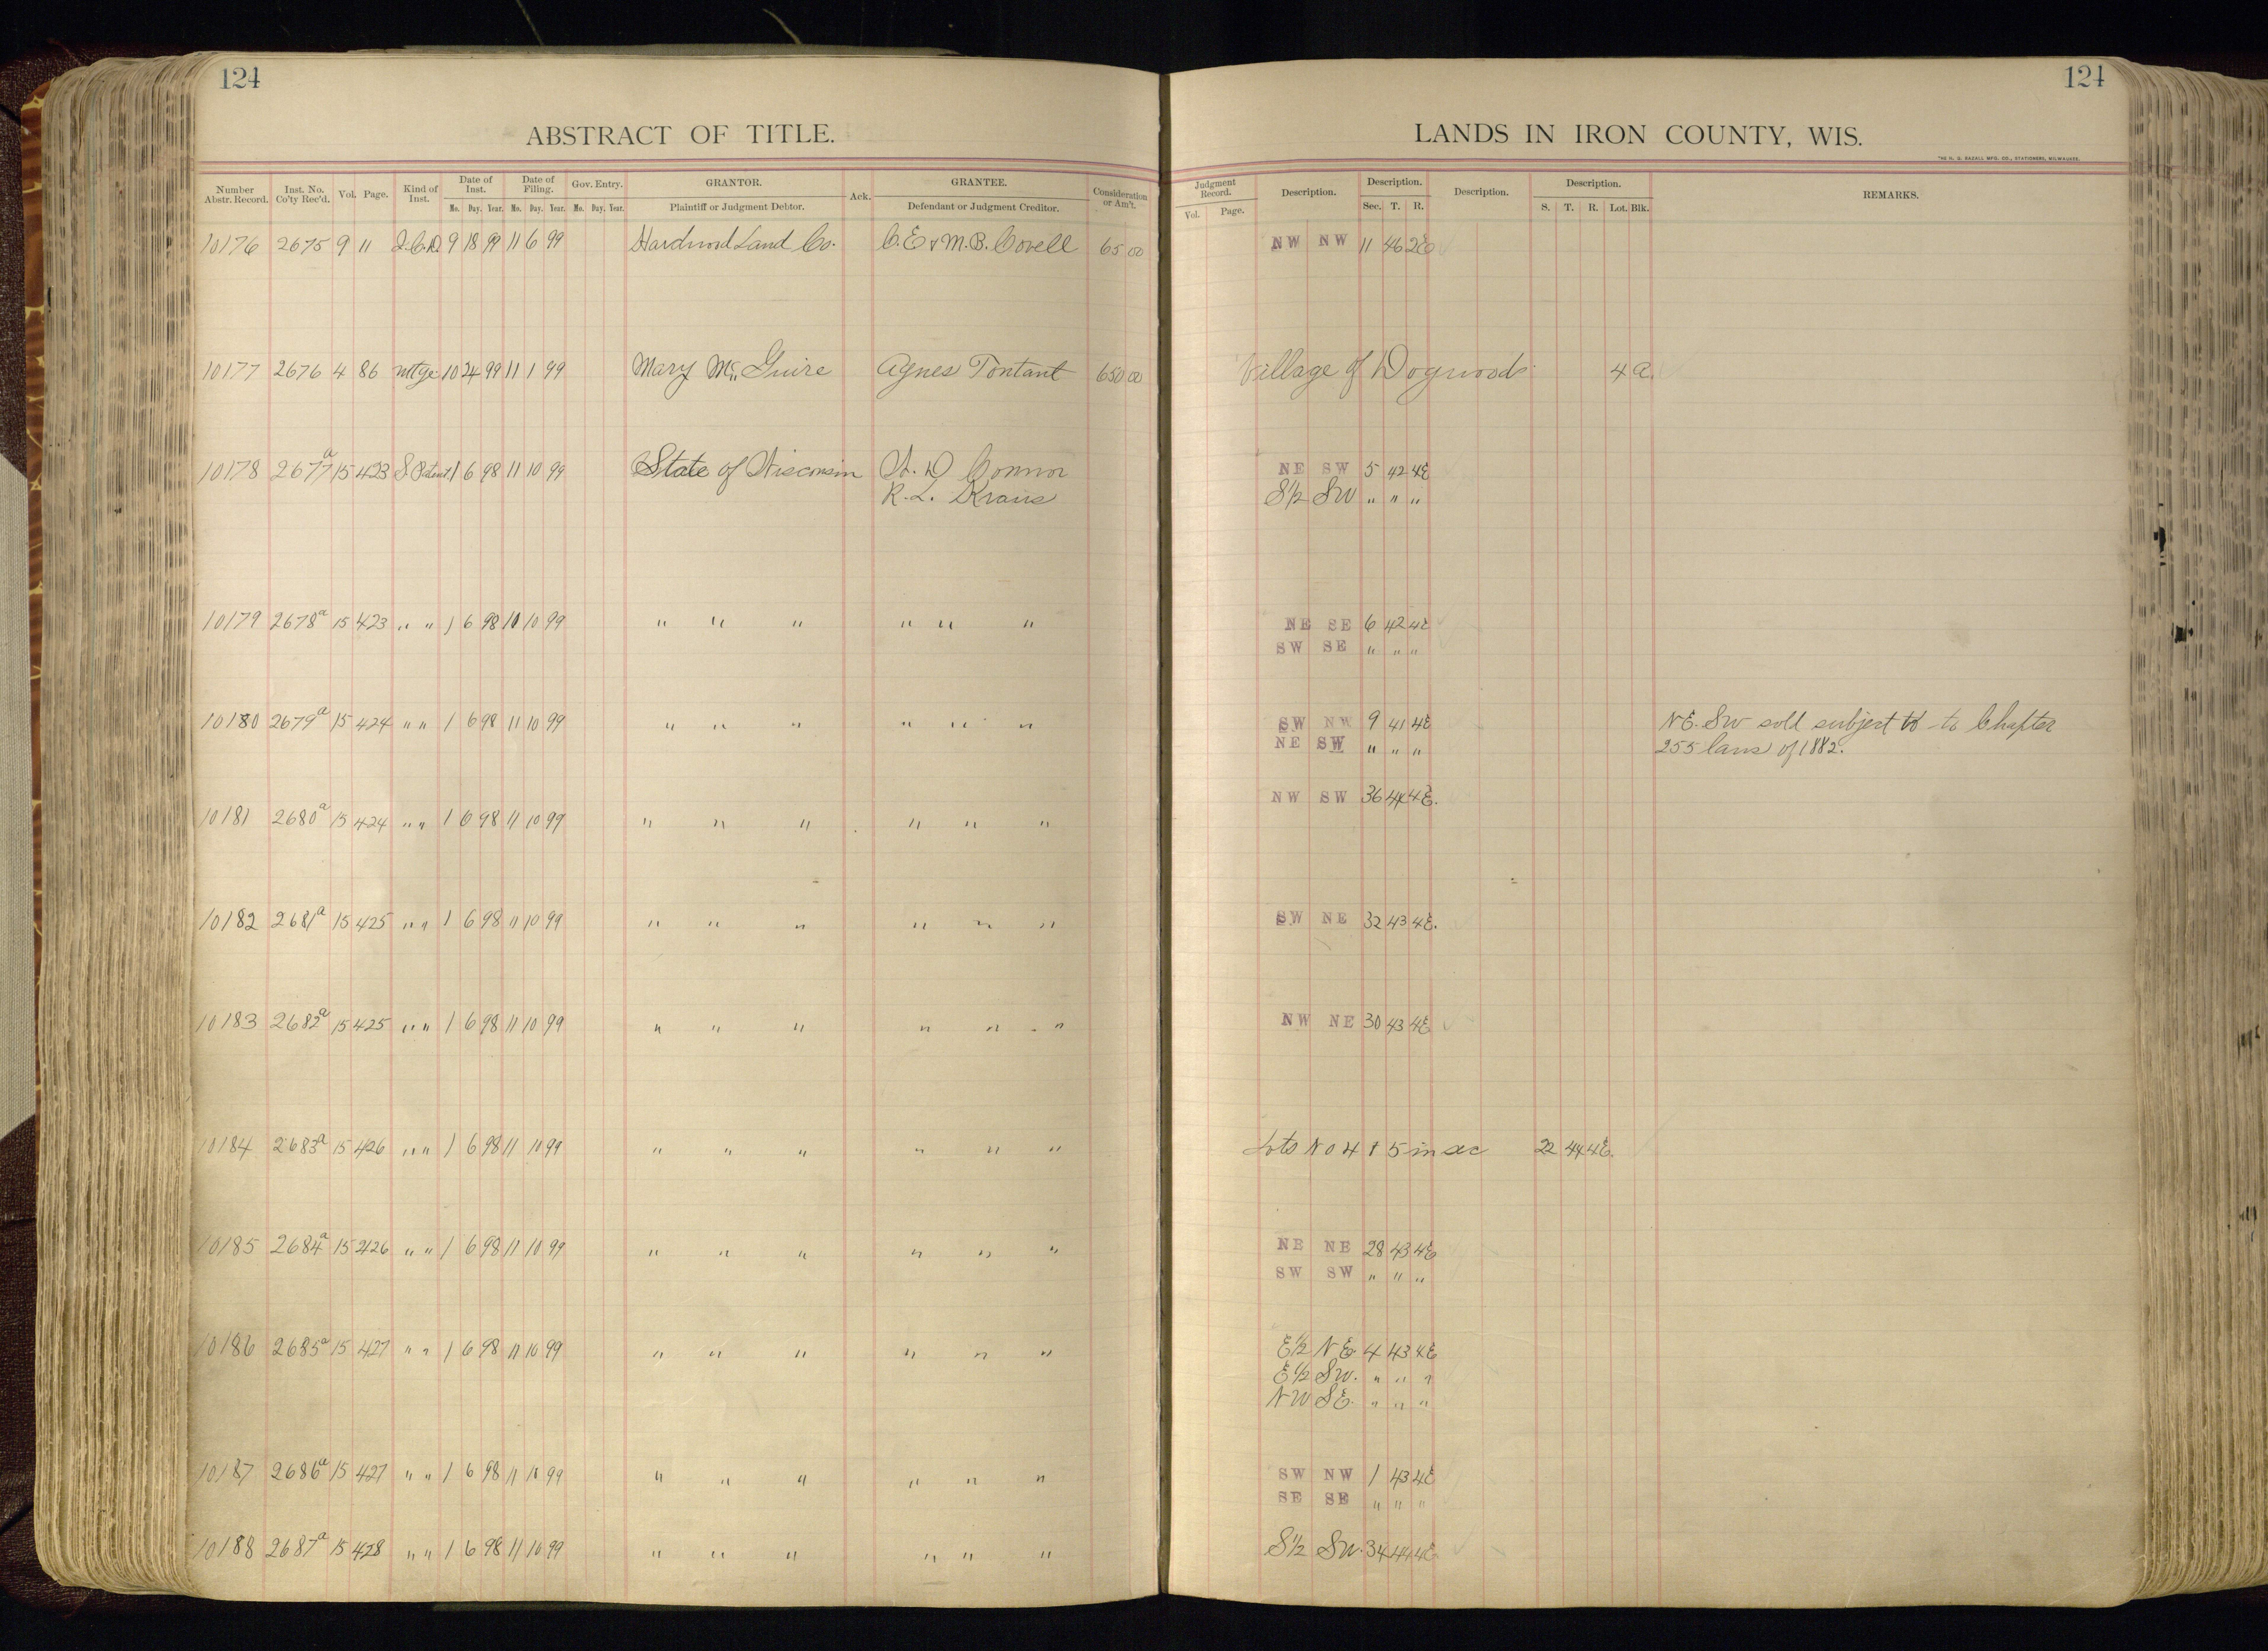 124
ABSTRACT OF TITLE.
Number Abstr. Record. Inst. No. Co'ty Rec'd. Vol. Page. Kind of Inst. Date of Inst. Mo. Day. Year. Date of Filing. Mo. Day. Year. Gov. Entry. Mo. Day. Year. GRANTOR. Plaintiff or Judgment Debtor. Ack. GRANTEE. Defendant or Judgment Creditor. Consideration or Am't.
10176 2675 9 11 2.C.D. 9 18 99 11 6 99 Hardwood Land Co. C.E & M.B. Covell 65 00
10177 2676 4 86 mtge 10 24 99 11 1 99 Mary Mc Guire Agnes Tontant 650 00
10178 2677a 15 423 S. Patent 1 6 98 11 10 99 State of Wisconsin W. D Connor
R. L. Kraus
10179 2678a 15 423 " " 1 6 98 11 10 99 " " " " " "
10180 2679a 15 424 " " 1 6 98 11 10 99 " " " " " "
10181 2680a 15 424 " " 1 6 98 11 10 99 " " " " " "
10182 2681a 15 425 " " 1 6 98 11 10 99 " " " " " "
10183 2682a 15 425 " " 1 6 98 11 10 99 " " " " " "
10184 2683a 15 426 " " 1 6 98 11 10 99 " " " " " "
10185 2684a 15 426 " " 1 6 98 11 10 99 " " " " " "
10186 2685a 15 427 " " 1 6 98 11 10 99 " " " " " "
10187 2686a 15 427 " " 1 6 98 11 10 99 " " " " " "
10188 2687a 15 428 " " 1 6 98 11 10 99 " " " " " "
124
LANDS IN IRON COUNTY, WIS.
THE H. G. RAZALL MFG. CO., STATIONERS, MILWAUKEE.
Judgment Record. Vol. Page. Description. Description. Sec. T. R. Description. Description. S. T. R. Lot. Blk. REMARKS.
NW NW 11 46 2E
Village of Dogwood 4 a.
NE SW 5 42 4E
S½ SW " " "
NE SE 6 42 4E
SW SE " " "
SW NW 9 41 4E N.E. SW sold subject to to Chapter
NE SW " " " 255 laws of 1882.
NW SW 36 44 4E.
SW NE 32 43 4E.
NW NE 30 43 4E
Lots No 4 & 5 in sec 22 44 4E.
NE NE 28 43 4E
SW SW " " "
E½ NE 4 43 4E
E½ SW. " " "
NW SE. " " "
SW NW 1 43 4E
SE SE " " "
S½ SW. 34 44 4E